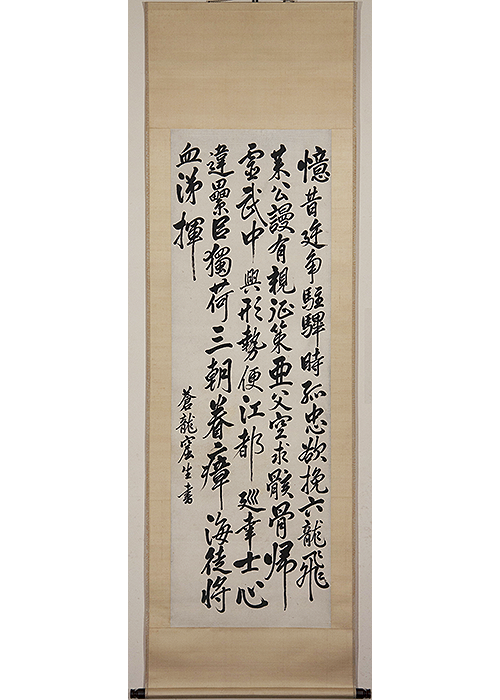 憶昔廷争駐驆時孤忠欲挽六龍飛
莱公謾有親征策亜父空求骸骨帰
霊武中興形勢便江都巡幸士心
違纍臣獨荷三朝眷瘴海徒将
血涕揮
蒼龍窟生書